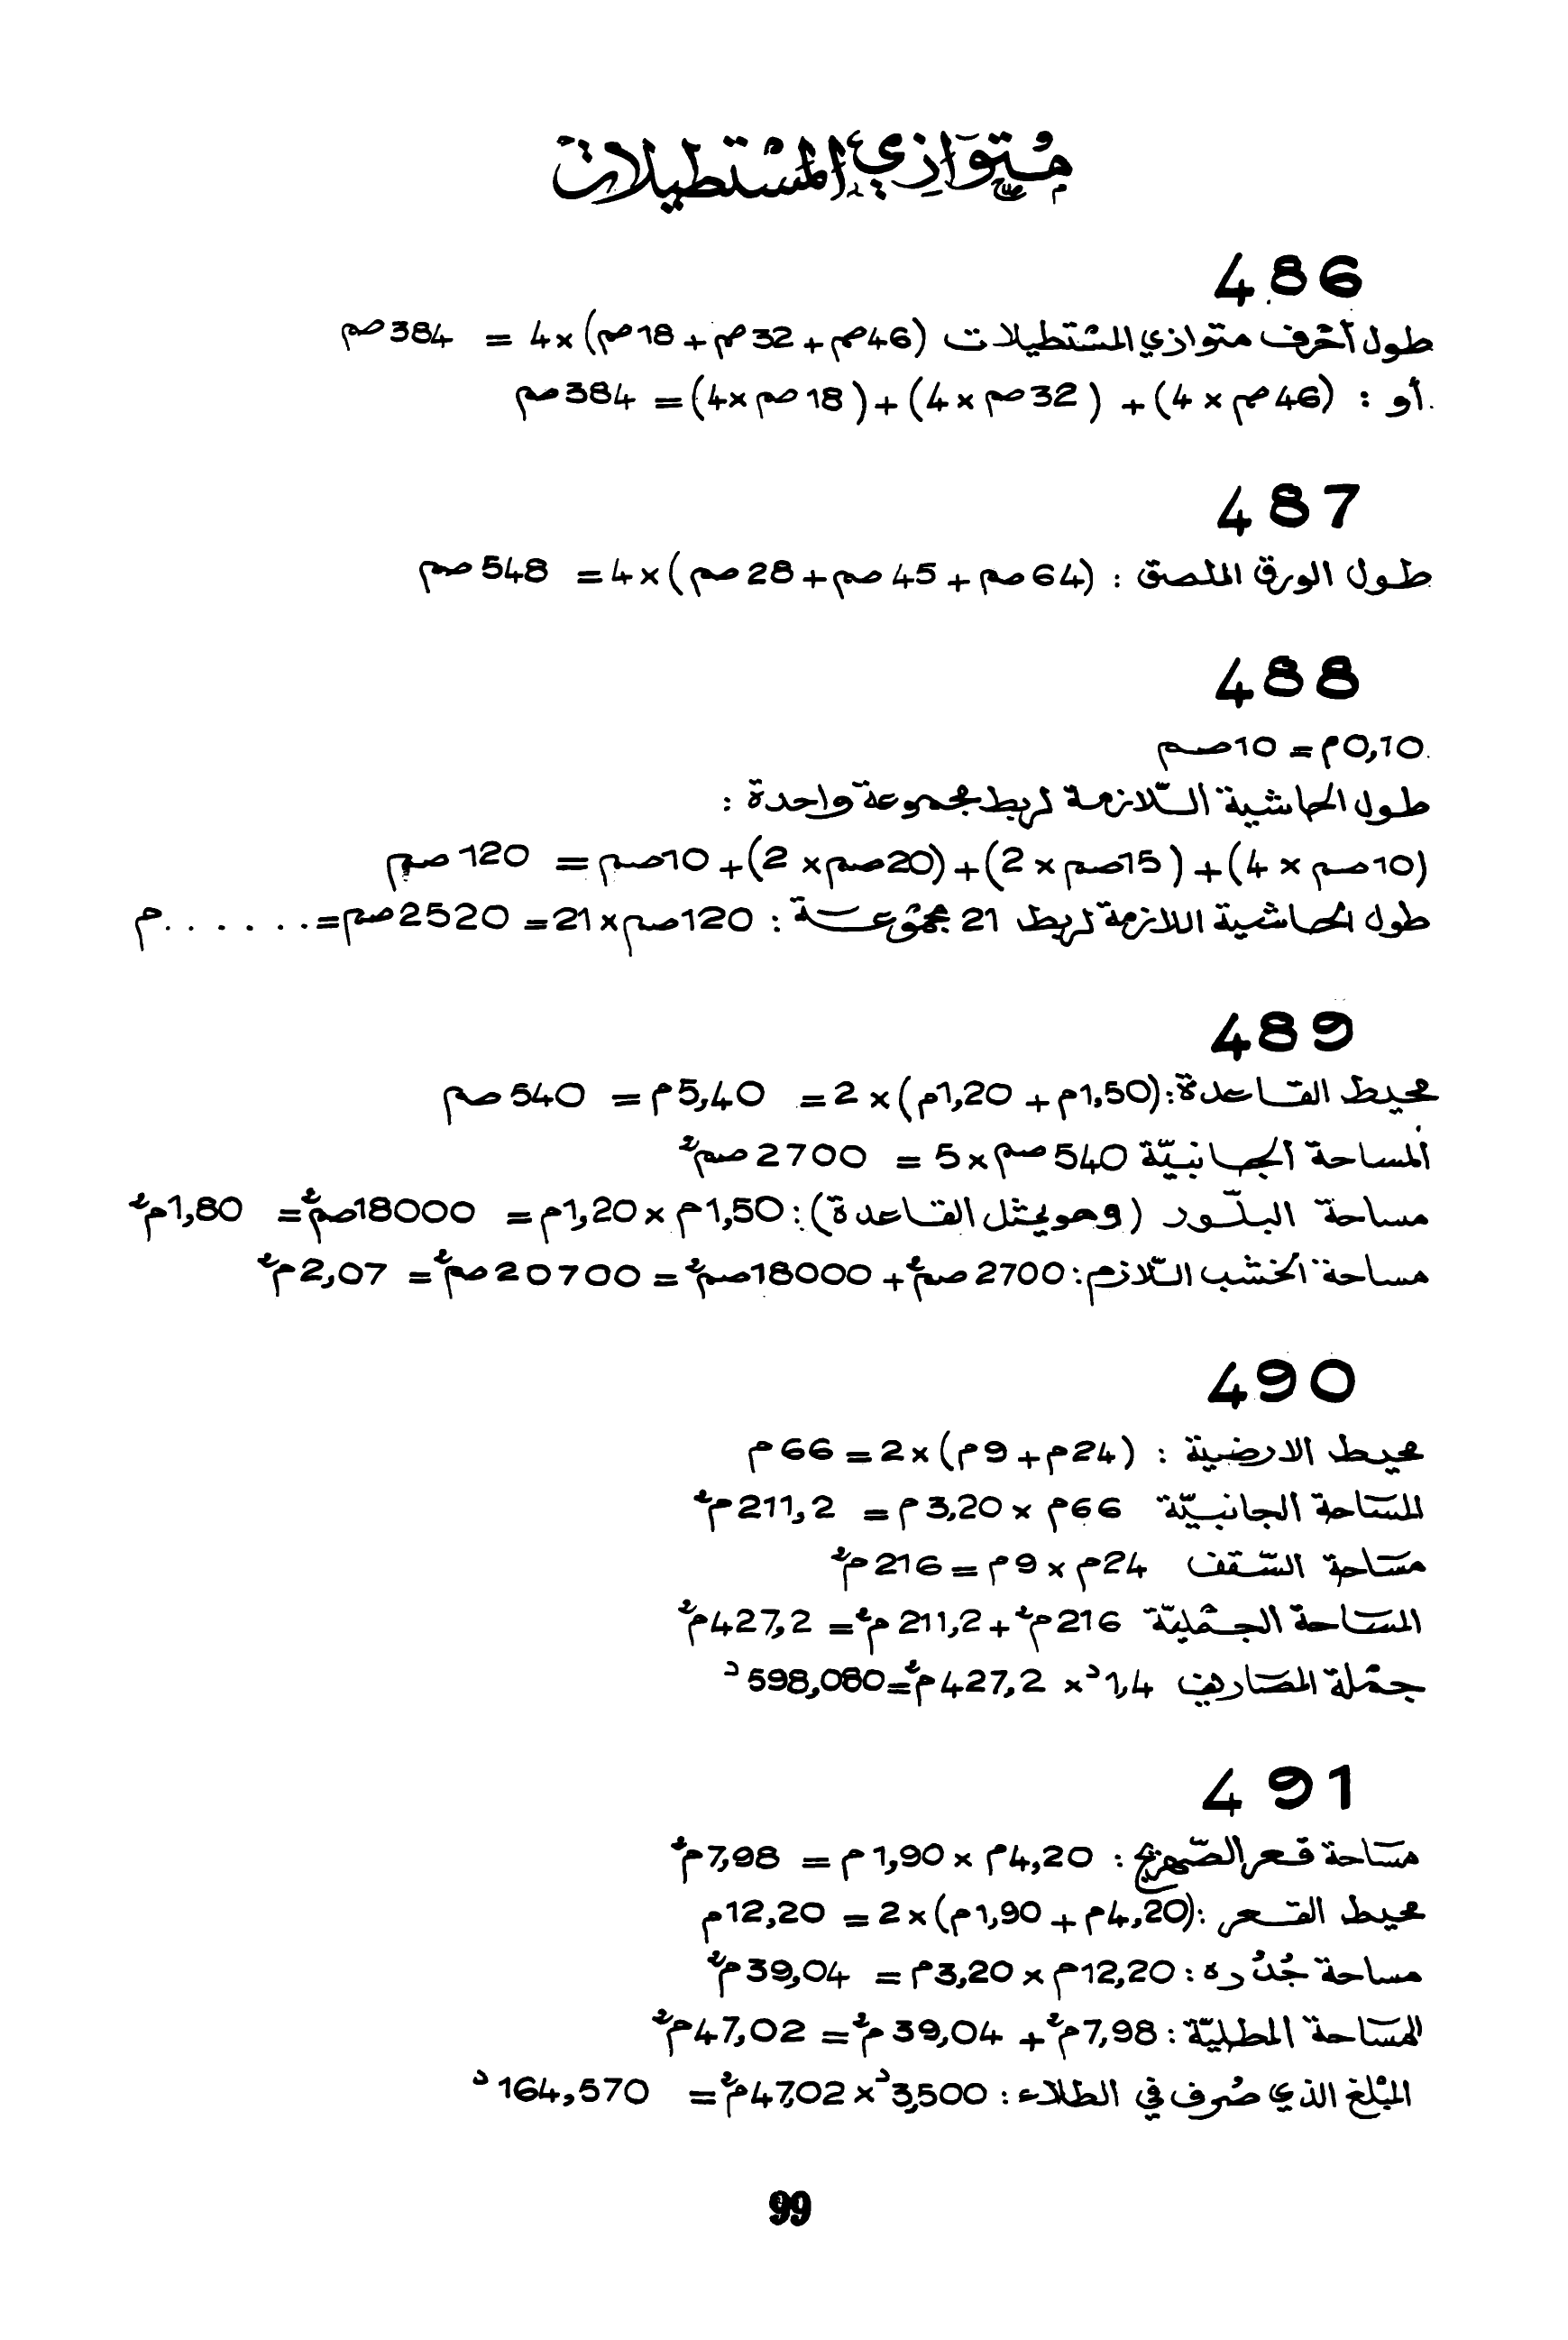 متوازي المستطيلات
486
طول أحرف متوازي المستطيلات (46صم + 32صم + 18صم) × 4 = 384صم
أو : (46صم × 4) + (32صم × 4) + (18صم × 4) = 384صم
487
طول الورق الملصق : (64صم + 45صم + 28صم) × 4 = 548صم
488
0,10م = 10صم
طول الحاشية اللّازمة لربط مجموعة واحدة :
(10صم × 4) + (15صم × 2) + (20صم × 2) + 10صم = 120صم
طول الحاشية اللازمة لربط 21 مجموعة : 120صم × 21 = 2520صم = . . . . . . م
489
محيط القاعدة : (1,50م + 1,20م) × 2 = 5,40م = 540صم
المساحة الجانبيّة 540صم × 5 = 2700صم²
مساحة البلّور (وهو يمثل القاعدة) : 1,50م × 1,20م = 18000صم² = 1,80م²
مساحة الخشب اللّازم : 2700صم² + 18000صم² = 20700صم² = 2,07م²
490
محيط الارضية : (24م + 9م) × 2 = 66م
المسَاحة الجانبيّة 66م × 3,20م = 211,2م²
مسَاحة السّقف 24م × 9م = 216م²
المسَاحة الجمْليّة 216م² + 211,2م² = 427,2م²
جمْلة المصَاريف 1,4د × 427,2م² = 598,080د
491
مسَاحة قعر الصّهريج : 4,20م × 1,90م = 7,98م²
محيط القعر : (4,20م + 1,90م) × 2 = 12,20م
مساحة جُدُره : 12,20م × 3,20م = 39,04م²
المسَاحة المطليّة : 7,98م² + 39,04م² = 47,02م²
المبْلغ الذي صُرف في الطلاء : 3,500د × 47,02م² = 164,570د
99